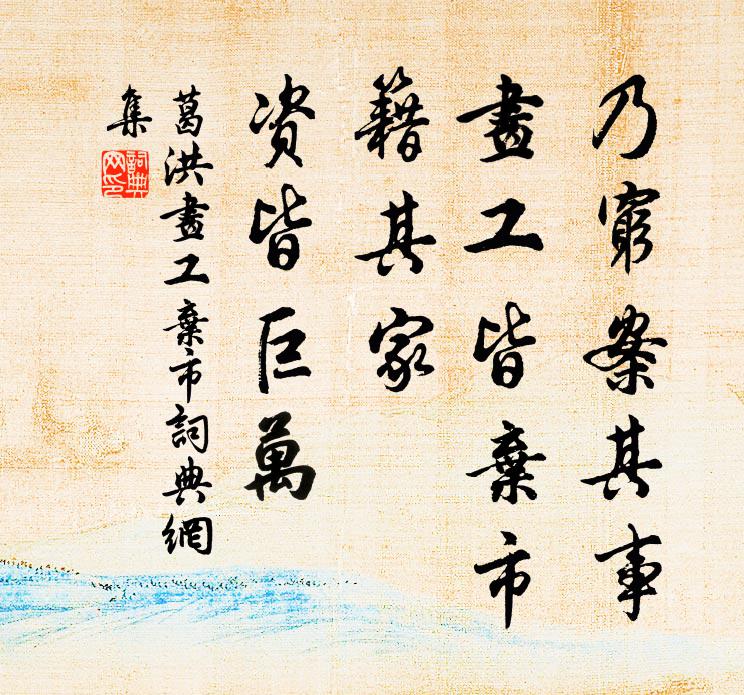 乃窮案其事
畫工皆棄市
籍其家
資皆巨萬
葛洪畫工棄市詞典網
集
詞典
網印